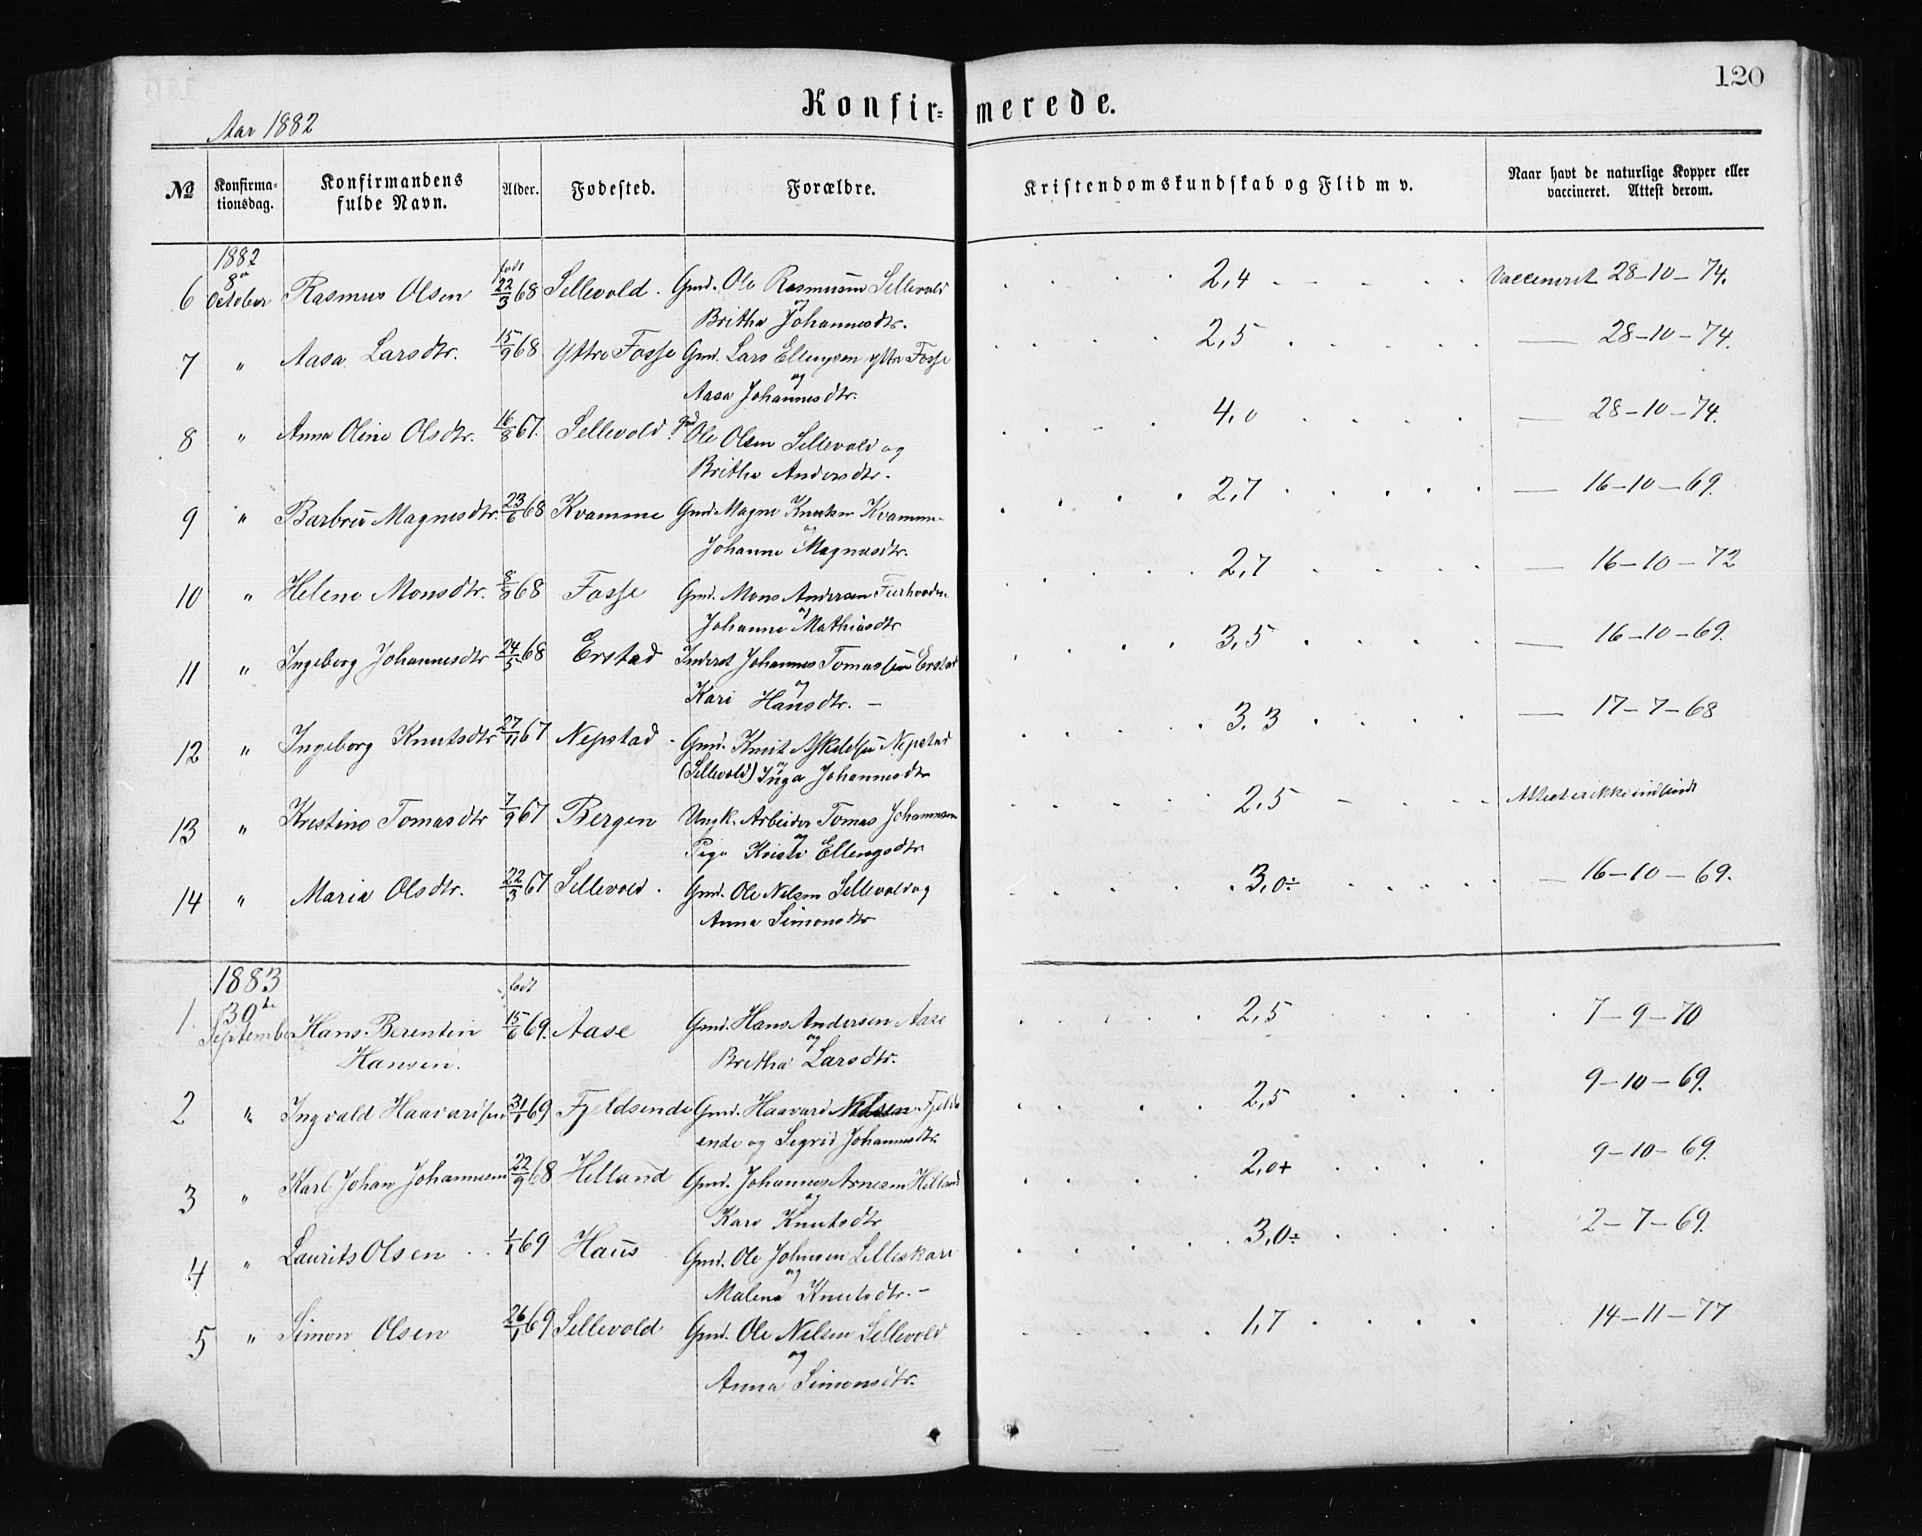 120
Konfirmerede.
Aar 1882
No Konfirmationsdag. Konfirmandens fulde Navn. Alder. Fødested. Forældre. Kristendomskundskab og Flid m v. Naar havt de naturlige Kopper eller vaccineret. Attest derom.
1882 født
6 8de October Rasmus Olsen 22/3 68 Sellevold. Gmd. Ole Rasmussen Sellevold 2,4 Vaccineret 28-10-74.
og Britha Johannesdtr.
7 " Aasa Larsdtr. 15/9 68 Yttre Fosse Gmd. Lars Ellingsen ytre Fosse 2,5 — 28-10-74.
og Aasa Johannesdtr.
8 " Anna Oline Olsdtr. 16/8 67. Sellevold. Gmd Ole Olsen Sellevold og 4,0 — 28-10-74.
Britha Andersdtr.
9 " Barbru Magnesdtr. 23/6 68 Kvamme Gmd. Magne Knutsen Kvamme 2,7 — 16-10-69.
og Johanne Magnesdtr.
10 " Helene Monsdtr. 68 Fosse Gmd. Mons Andersen 2,7 — 16-10-72
og Johanne Mathiasdtr
11 " Ingeborg Johannesdtr 24/5 68 Erstad Inderst Johannes Tomassen Erstad 3,5 — 16-10-69.
og Kari Hansdtr. —
12 " Ingeborg Knutsdtr 27/11 67 Nepstad. Gmd. Knut Askelsen Nepstad 3.3 — 17-7-68
(Sellevold) og Inga Johannesdtr
13 " Kristine Tomasdtr 7/9 67 Bergen Ungk. Arbeider Tomas Johannesen 2,5 Attest er ikke indsendt
og Pige Kristi Ellingsdtr
14 " Maria Olsdtr. 22/3 67 Sellevold. Gmd. Ole Nelsen Sellevold og 3,0÷ — 16-10-69.
Anna Simonsdtr
1883 født
1 30te September Hans Berentin 15/6 69. Aase Gmd. Hans Andersen Aase 2,5 7-9-70
Hansen. og Britha Larsdtr.
2 " Ingvald Haavardsen 31/1 69 Fjeldsende Gmd. Haavard Nelsen Fjelds 2,5 9-10-69.
ende og Sigrid Johannesdtr
3 " Karl Johan Johannesen 22/9 68 Helland Gmd. Johannes Arnesen Helland 2,0+ 9-10-69.
og Kari Knutsdtr
4 " Laurits Olsen 1/1 69 Haus Gmd. Ole Johnsen Lilleskare 3,0÷ 2-7-69.
og Malena Knutsdtr. —
5 " Simon Olsen 26/1 69 Sellevold Gmd. Ole Nelsen Sellevold 1,7 14-11-77
og
Anna Simonsdtr.